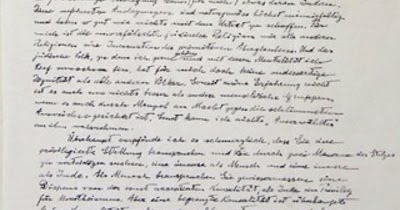 Diese verfeinerten Auslegungen sind naturgemäss höchst mannigfaltig
und haben so gut wie nichts mit dem Urtext zu schaffen. Für
mich ist die unverfälschte jüdische Religion wie alle anderen
Religionen eine Incarnation des primitiven Aberglaubens. Und das
jüdische Volk, zu dem ich gerne gehöre und mit dessen Mentalität ich
tief verwachsen bin, hat für mich doch keine andersartige
Dignität als alle anderen Völker. Soweit meine Erfahrung reicht
ist es auch um nichts besser als andere menschliche Gruppen
wenn es auch durch Mangel an Macht gegen die schlimmsten
Auswüchse gesichert ist. Sonst kann ich nichts „Auserwähltes“
an ihm wahrnehmen.
Überhaupt empfinde ich es schmerzlich, dass Sie eine
privilegierte Stellung beanspruchen und sie durch zwei Mauern des Stolzes
zu verteidigen suchen, eine äussere als Mensch und eine innere
als Jude. Als Mensch beanspruchen Sie gewissermassen einen
Dispens von der sonst acceptierten Kausalität, als Jude ein Privileg
für Monotheismus. Aber eine begrenzte Kausalität ist überhaupt